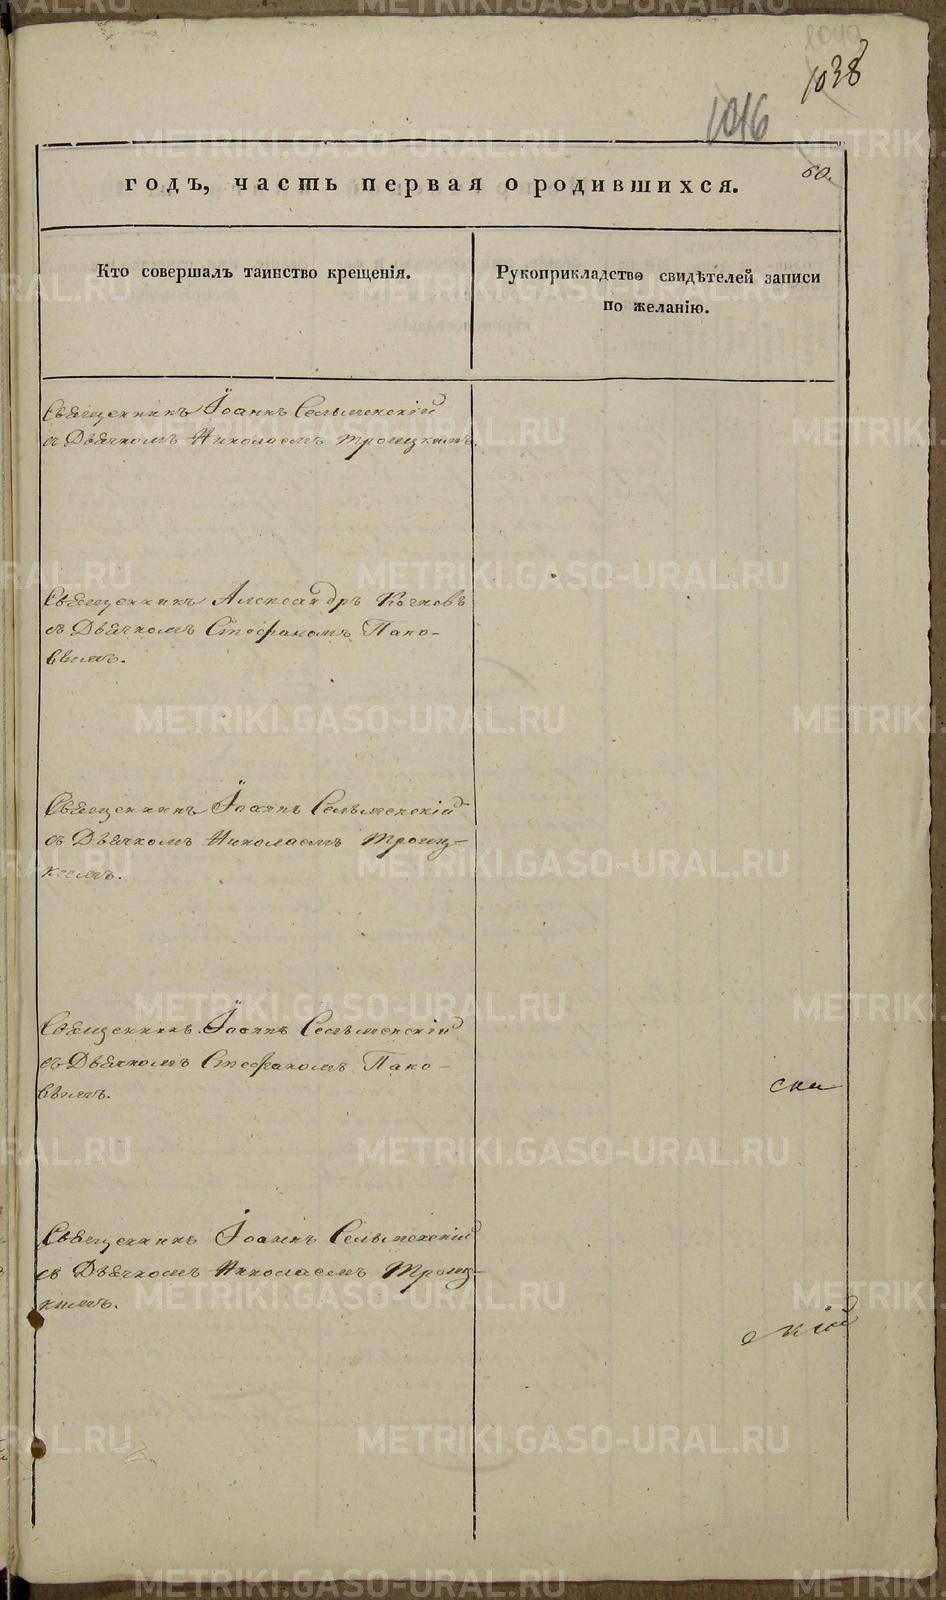 1038
1016
60.
годъ, часть первая о родившихся.
Кто совершалъ таинство крещенія.
Рукоприкладство свидѣтелей записи
по желанію.
Священникъ Іоаннъ Сельменскій
съ Дьячкомъ Николаемъ Троицкимъ.
Священникъ Александръ Кочневъ
съ Дьячкомъ Стефаномъ Папо-
вымъ.
Священникъ Іоаннъ Сельменскій
съ Дьячкомъ Николаемъ Троиц-
кимъ.
Священникъ Іоаннъ Сельменскій
съ Дьячкомъ Стефаномъ Папо-
вымъ.
ска
Священникъ Іоаннъ Сельменскій
съ Дьячкомъ Николаемъ Троиц-
кимъ.
скій
METRIKI.GASO-URAL.RU